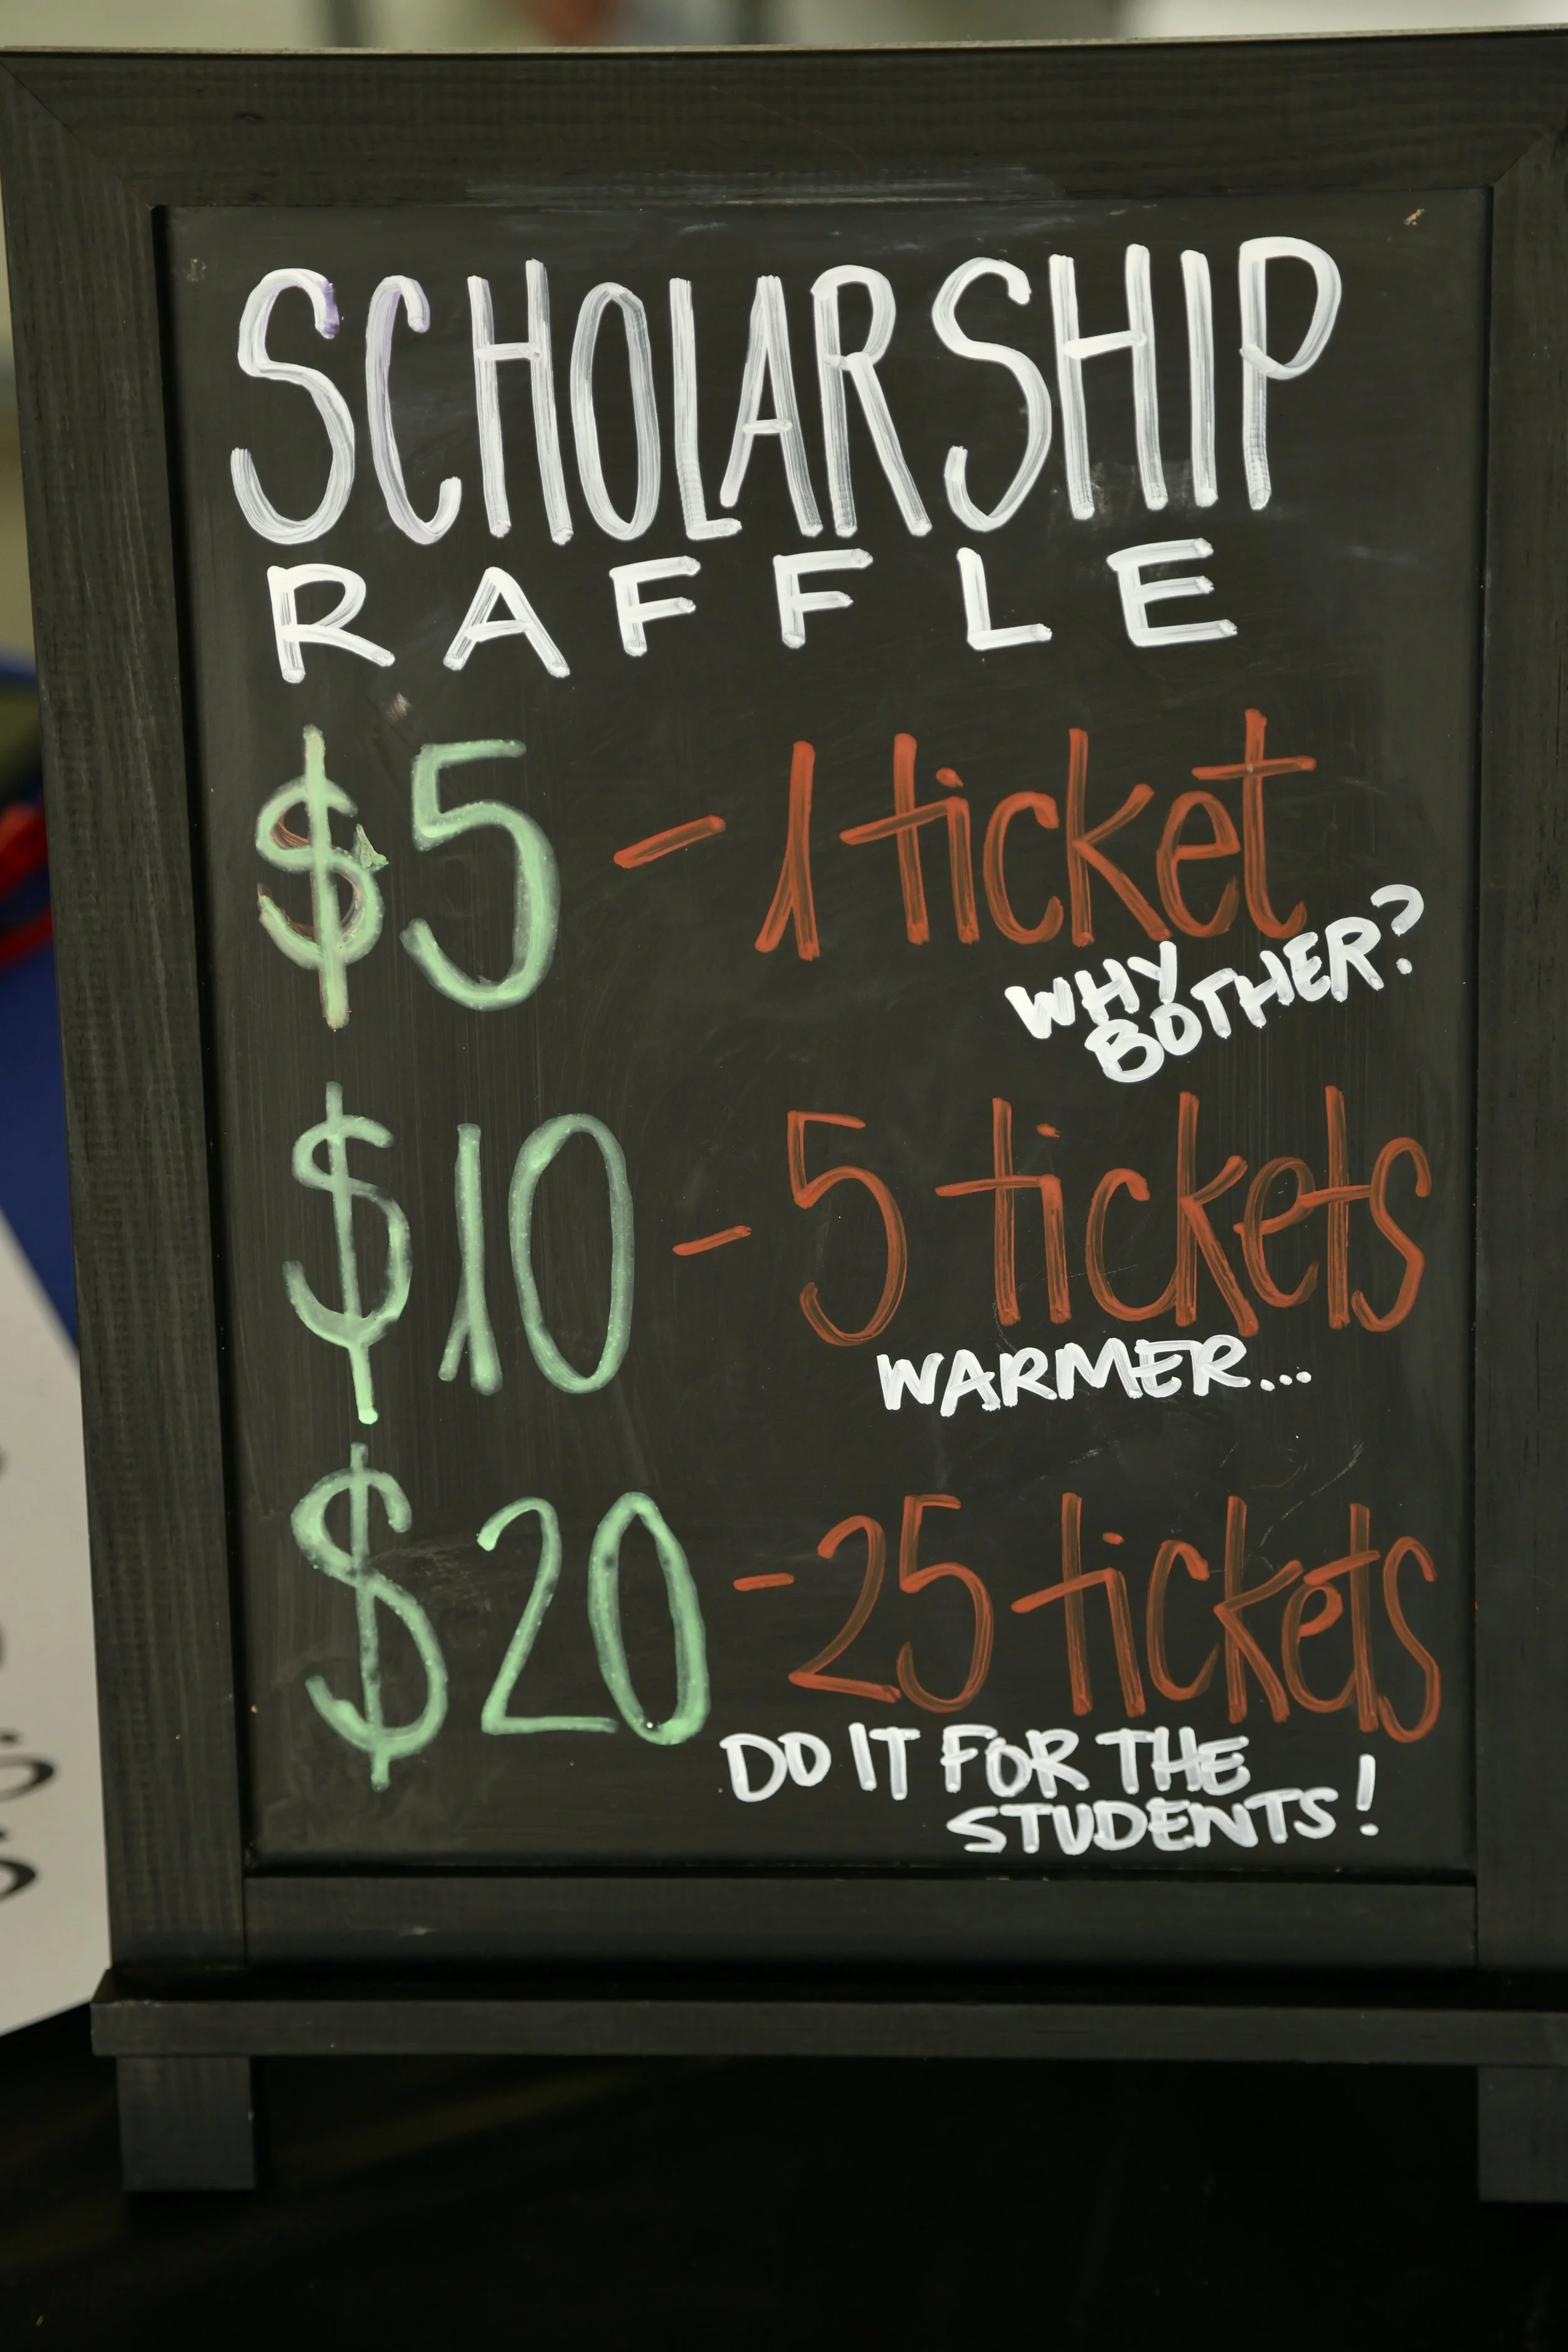 SCHOLARSHIP
RAFFLE
$5 - 1 ticket
WHY
BOTHER?
$10 - 5 tickets
WARMER...
$20 - 25 tickets
DO IT FOR THE
STUDENTS!